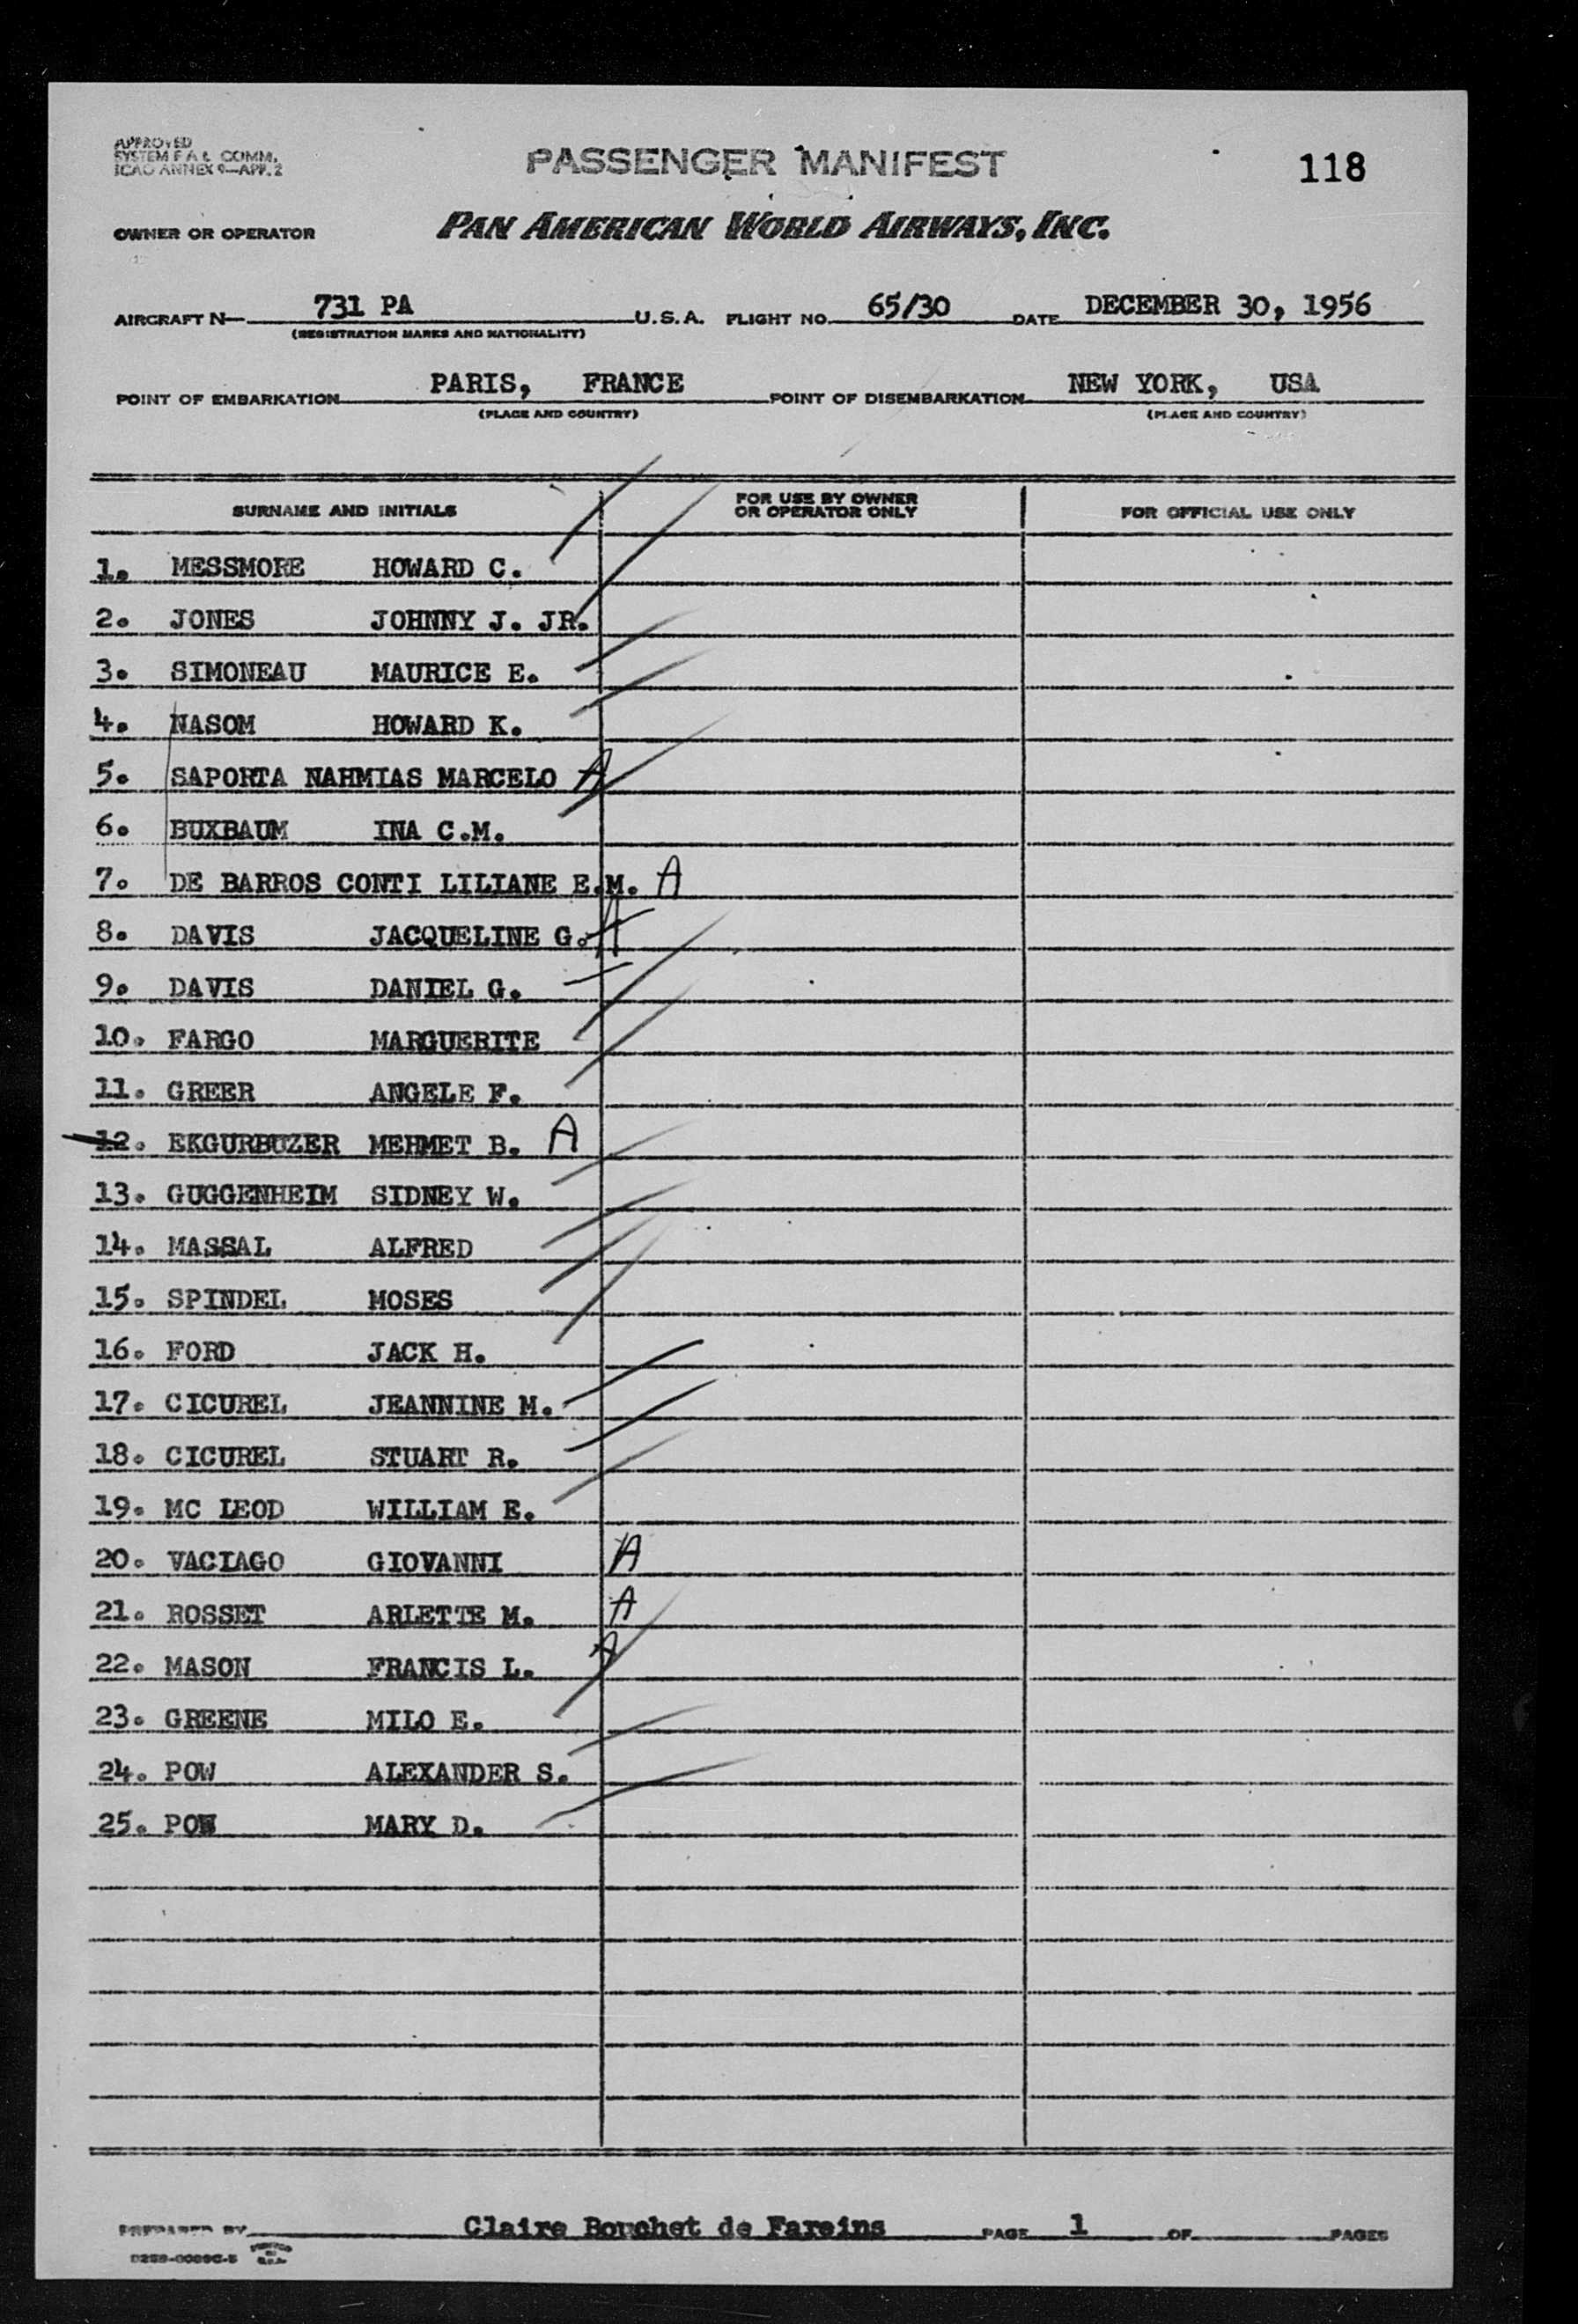 APPROVED
SYSTEM F A L COMM.
ICAO ANNEX 9—APP. 2
PASSENGER MANIFEST
118
OWNER OR OPERATOR
PAN AMERICAN WORLD AIRWAYS, INC.
AIRCRAFT N— 731 PA U.S.A. FLIGHT NO. 65/30 DATE DECEMBER 30, 1956
(REGISTRATION MARKS AND NATIONALITY)
POINT OF EMBARKATION PARIS, FRANCE POINT OF DISEMBARKATION NEW YORK, USA
(PLACE AND COUNTRY) (PLACE AND COUNTRY)
SURNAME AND INITIALS
FOR USE BY OWNER
OR OPERATOR ONLY
FOR OFFICIAL USE ONLY
1. MESSMORE HOWARD C.
2. JONES JOHNNY J. JR.
3. SIMONEAU MAURICE E.
4. NASOM HOWARD K.
5. SAPORTA NAHMIAS MARCELO A
6. BUXBAUM INA C.M.
7. DE BARROS CONTI LILIANE E.M. A
8. DAVIS JACQUELINE G. A
9. DAVIS DANIEL G.
10. FARGO MARGUERITE
11. GREER ANGELE F.
12. EKGURBUZER MEHMET B. A
13. GUGGENHEIM SIDNEY W.
14. MASSAL ALFRED
15. SPINDEL MOSES
16. FORD JACK H.
17. CICUREL JEANNINE M.
18. CICUREL STUART R.
19. MC LEOD WILLIAM E.
20. VACIAGO GIOVANNI A
21. ROSSET ARLETTE M. A
22. MASON FRANCIS L. A
23. GREENE MILO E.
24. POW ALEXANDER S.
25. POW MARY D.
PREPARED BY Claire Bouchet de Fareins PAGE 1 OF PAGES